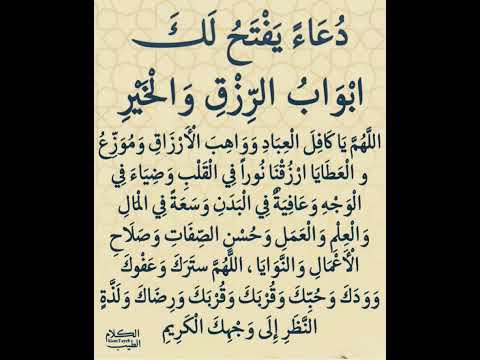 دُعَاءً يَفْتَحُ لَكَ
ابْوَابُ الرِّزْقِ وَالْخَيْرِ
اللَّهُمَّ يَا كَافِلَ الْعِبَادِ وَوَاهِبَ الْأَرْزَاقِ وَمُوَزِّعُ
و الْعَطَايَا ارْزُقْنَا نُوراً فِي الْقَلْبِ وَضِيَاءَ فِي
الْوَجْهِ وَعَافِيَةٌ فِي الْبَدَنِ وَسَعَةً فِي الْمَالِ
وَالْعِلْمِ وَالْعَمَلِ وَحُسْنِ الصِّفَاتِ وَصَلَاحِ
الْأَعْمَالِ وَالنَّوَايَا ، اللَّهُمَّ سِتْرَكَ وَعَفْوَكَ
وَوَدَكَ وَحُبِّكَ وَقُرْبَكَ وَقُرْبَكَ وَرِضَاكَ وَلَذَّةٍ
النَّظَرِ إِلَى وَجْهِكَ الْكَرِيمِ
الكلام
الطيب